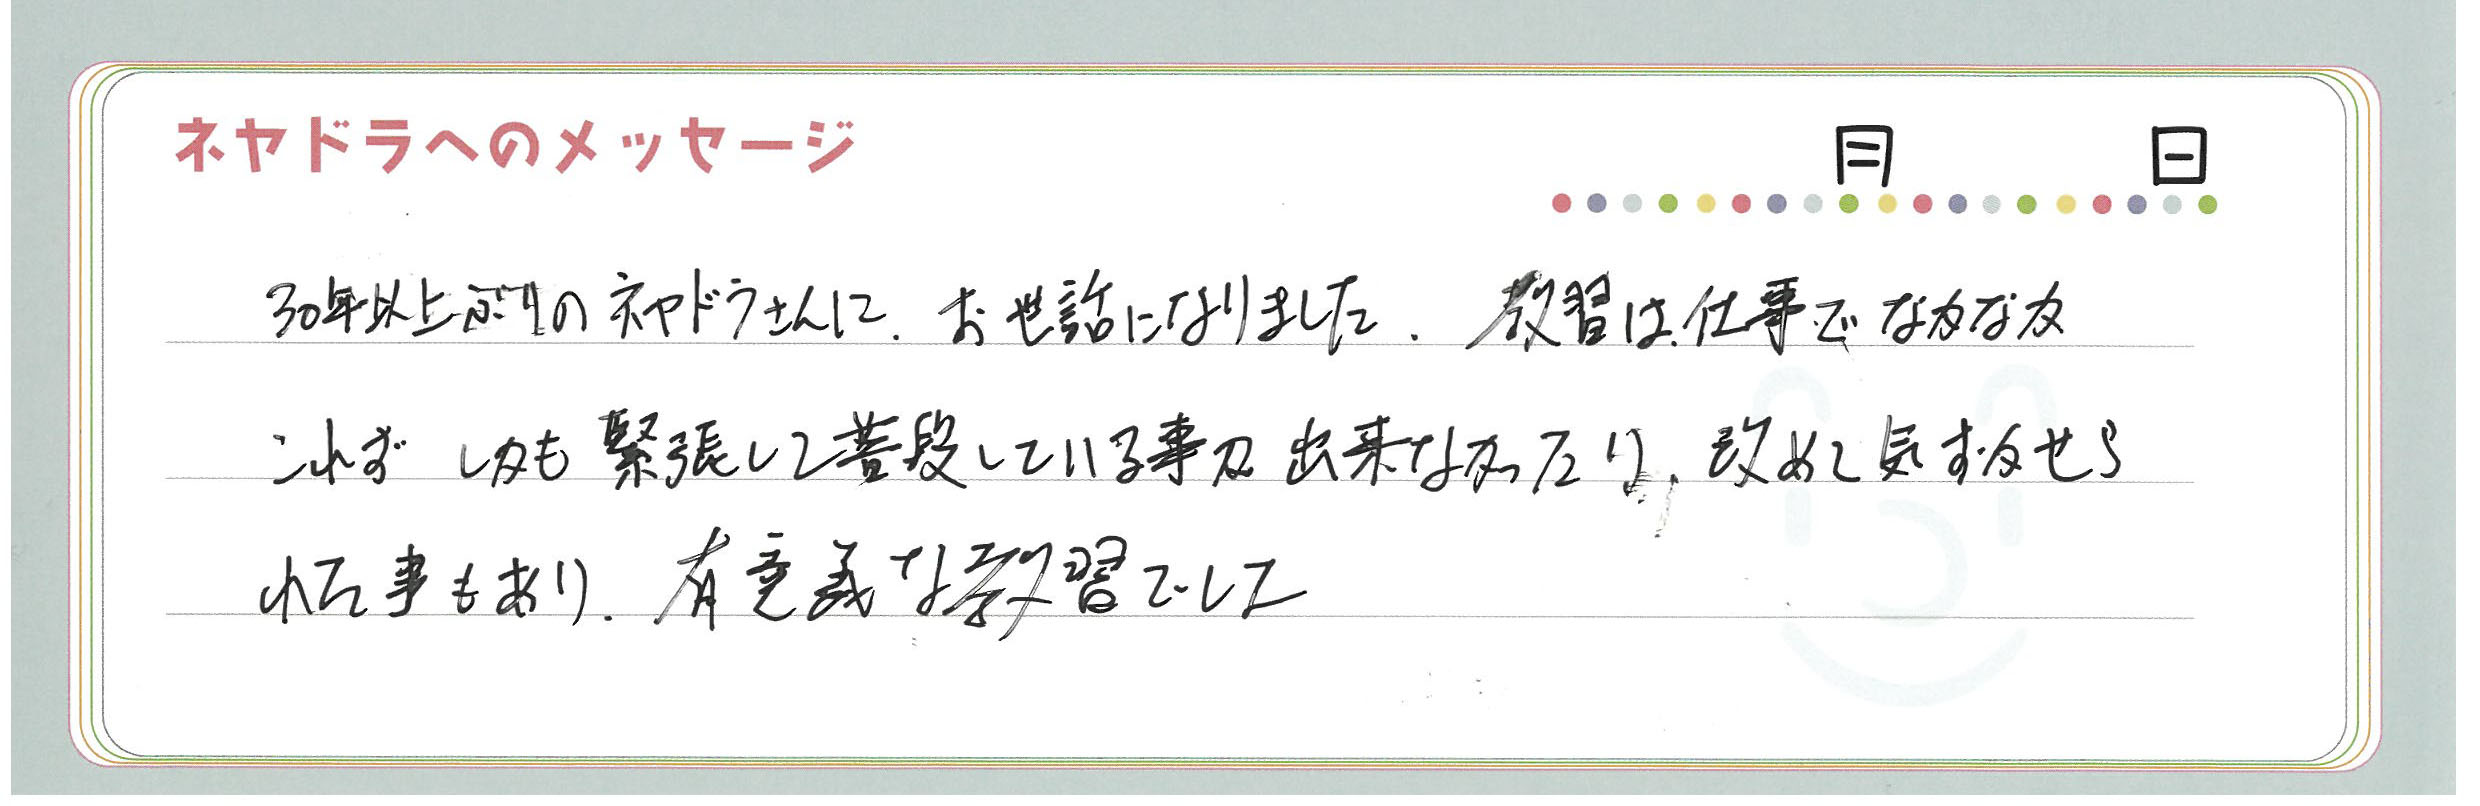 ネヤドラへのメッセージ
月 日
30年以上ぶりのネヤドラさんに、お世話になりました。教習は、仕事でなかなか
これず しかも緊張して普段している事が出来なかったり、改めて気ずかせら
れた事もあり、有意義な教習でした